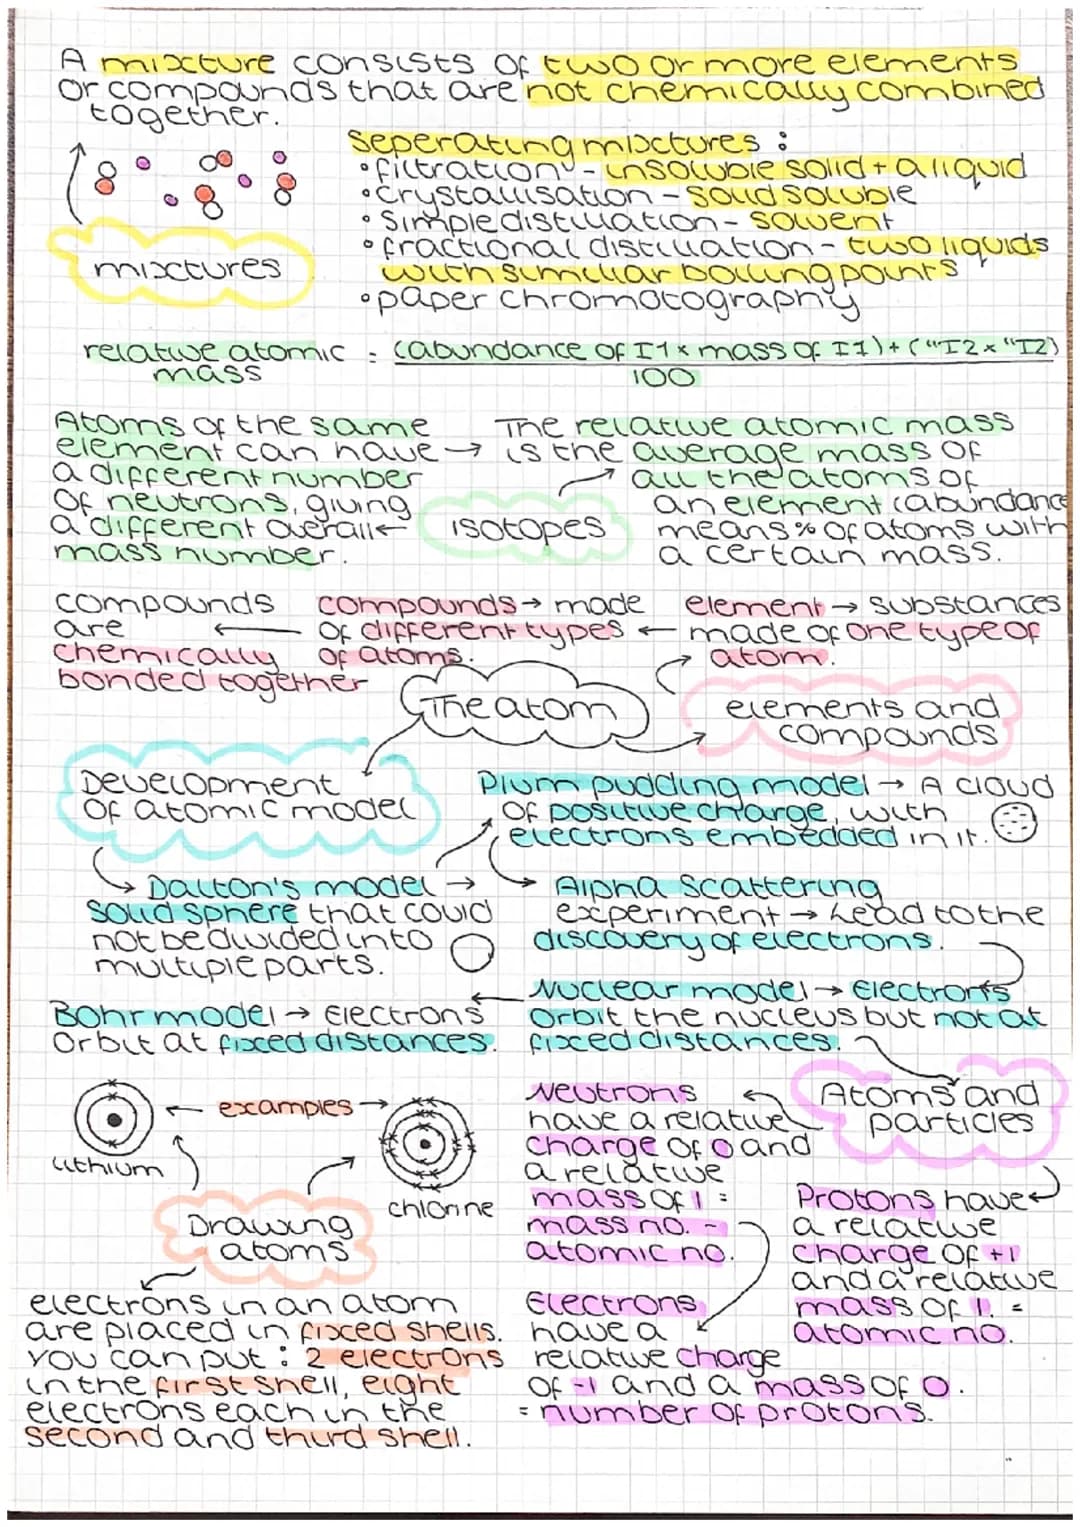 A mixture consists of two or more elements
or compounds that are not chemically combined
together.
Seperating mixtures :
• filtration - insoluble solid + a liquid
• crystallisation - solid soluble
• simple distillation - solvent
• fractional distillation - two liquids
with similiar boiling points
• paper chromotography
mixtures
relative atomic mass = (abundance of I1 x mass of I1) + ("I2 x "I2)
100
Atoms of the same
element can have →
a different number
of neutrons, giving
a different overall ←
mass number.
isotopes
The relative atomic mass
is the average mass of
all the atoms of
an element (abundance
means % of atoms with
a certain mass.
compounds
are
chemically
bonded together
compounds → made
of different types
of atoms.
element → substances
made of one type of
atom.
The atom
elements and
compounds
Development
of atomic model
Plum pudding model → A cloud
of positive charge, with
electrons embedded in it.
Dalton's model →
solid sphere that could
not be divided into
multiple parts.
Alpha Scattering
experiment → Lead to the
discovery of electrons.
Nuclear model → Electrons
orbit the nucleus but not at
fixed distances.
Bohr model → Electrons
orbit at fixed distances.
← examples →
lithium
chlorine
Drawing
atoms
electrons in an atom
are placed in fixed shells.
you can put : 2 electrons
in the first shell, eight
electrons each in the
second and third shell.
Atoms and
particles
Neutrons
have a relative
charge of 0 and
a relative
mass of 1 =
mass no. -
atomic no.
Protons have
a relative
charge of +1
and a relative
mass of 1. =
atomic no.
Electrons
have a
relative charge
of -1 and a mass of 0.
= number of protons.